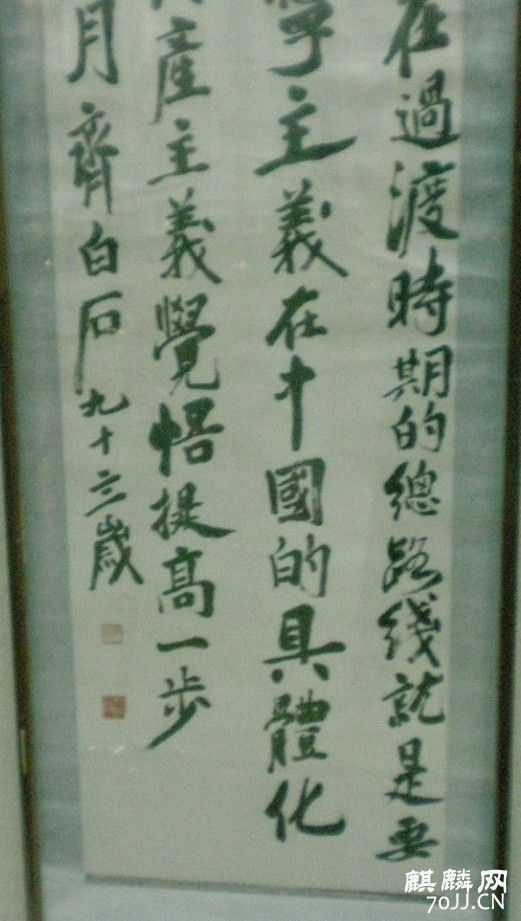 在過渡時期的總路綫就是要
主義在中國的具體化
產主義覺悟提高一步
月齊白石九十三歲
麒麟网
70JJ.CN